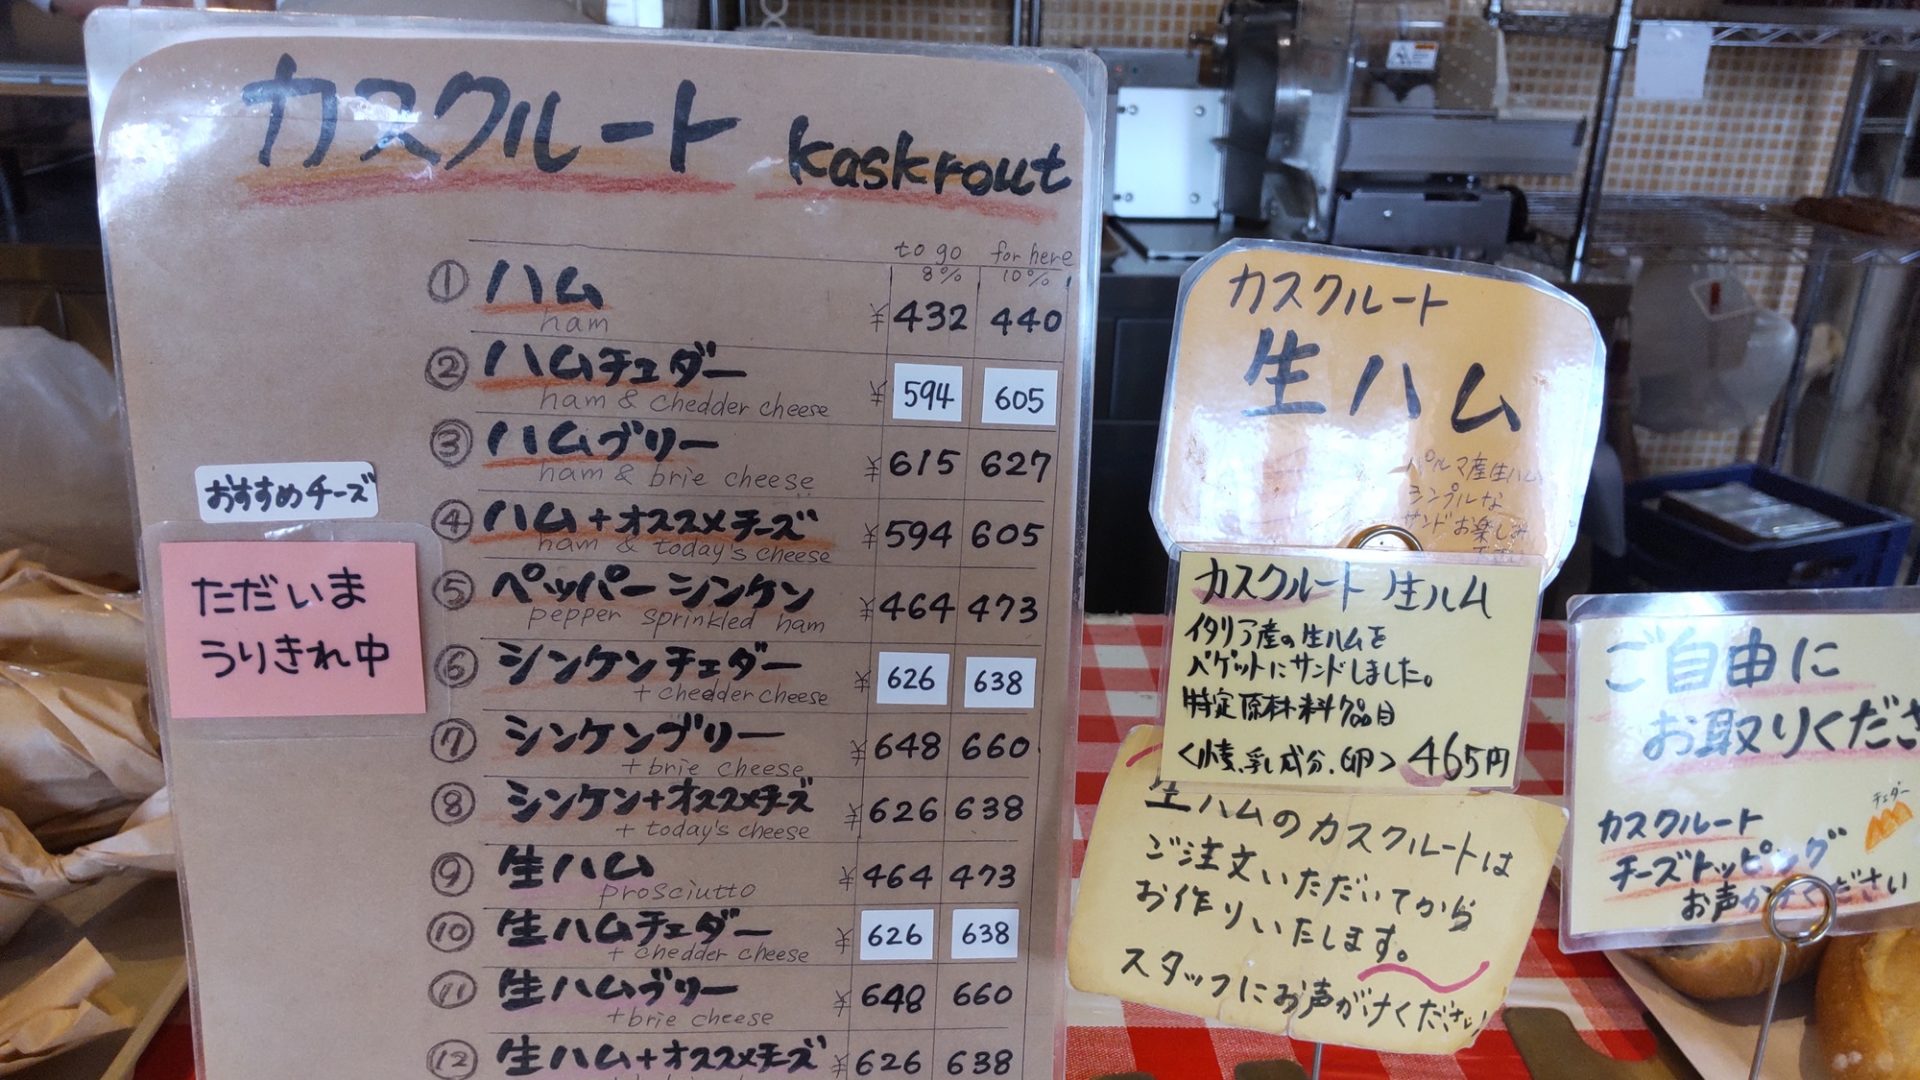 カスクルート kaskrout
to go for here
8% 10%
① ハム ¥432 440
ham
② ハムチェダー ¥594 605
ham & chedder cheese
③ ハムブリー ¥615 627
ham & brie cheese
④ ハム+オススメチーズ ¥594 605
ham & today's cheese
⑤ ペッパーシンケン ¥464 473
pepper sprinkled ham
⑥ シンケンチェダー ¥626 638
+ chedder cheese
⑦ シンケンブリー ¥648 660
+brie cheese
⑧ シンケン+オススメチーズ ¥626 638
+ today's cheese
⑨ 生ハム ¥464 473
prosciutto
⑩ 生ハムチェダー ¥626 638
+ chedder cheese
⑪ 生ハムブリー ¥648 660
+brie cheese
⑫ 生ハム+オススメチーズ ¥626 638
おすすめチーズ
ただいま
うりきれ中
カスクルート
生ハム
パルマ産生ハム
シンプルな
サンドお楽しみ
カスクルート 生ハム
イタリア産の生ハムを
バゲットにサンドしました。
特定原材料7品目
<小麦、乳成分、卵> 465円
生ハムのカスクルートは
ご注文いただいてから
お作りいたします。
スタッフにお声がけください
ご自由に
お取りくださ
チェダー
カスクルート
チーズトッピング
お声がけください